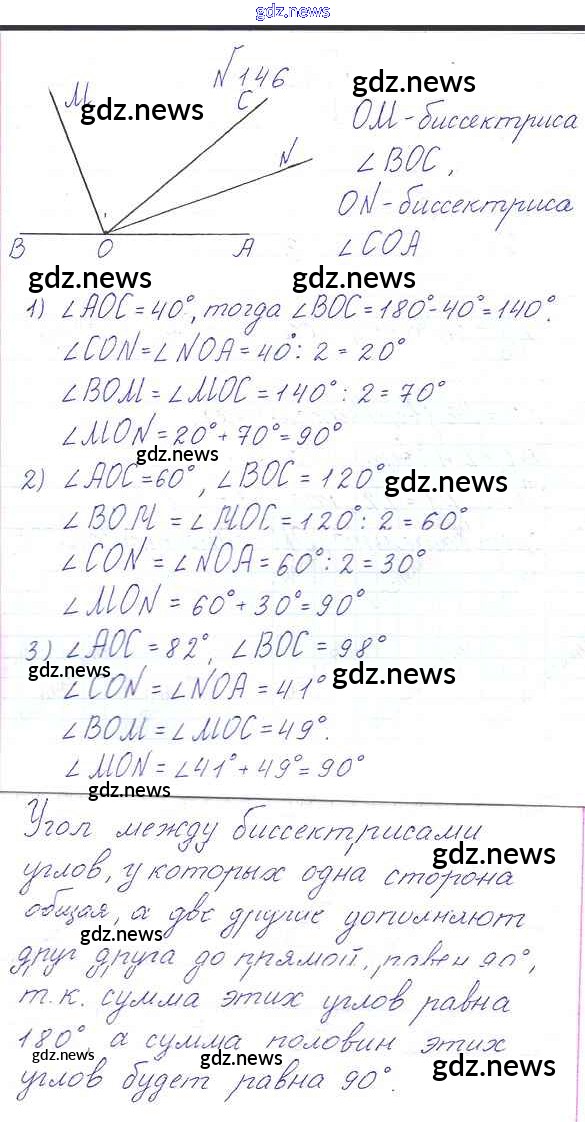 gdz.news
№146
M
C
N
B
O
A
gdz.news
gdz.news
OM - биссектриса
∠BOC,
ON - биссектриса
∠COA
gdz.news
gdz.news
1) ∠AOC = 40°, тогда ∠BOC = 180° - 40° = 140°.
∠CON = ∠NOA = 40° : 2 = 20°
∠BOM = ∠MOC = 140° : 2 = 70°
∠MON = 20° + 70° = 90°
gdz.news
2) ∠AOC = 60°, ∠BOC = 120°
gdz.news
∠BOM = ∠MOC = 120° : 2 = 60°
∠CON = ∠NOA = 60° : 2 = 30°
∠MON = 60° + 30° = 90°
3) ∠AOC = 82°, ∠BOC = 98°
gdz.news
∠CON = ∠NOA = 41°
gdz.news
∠BOM = ∠MOC = 49°.
∠MON = ∠41° + 49° = 90°
gdz.news
Угол между биссектрисами
gdz.news
углов, у которых одна сторона
общая, а две другие дополняют
gdz.news
друг друга до прямой, равен 90°,
т.к. сумма этих углов равна
180°, а сумма половин этих
gdz.news
gdz.news
gdz.news
углов будет равна 90°.